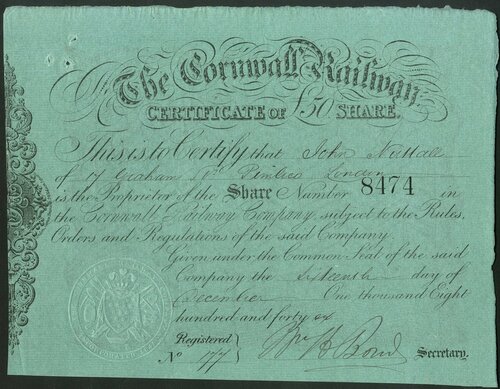 The Cornwall Railway.
CERTIFICATE OF £50 SHARE.
This is to Certify that John Nuttall
of 17 Graham St Pimlico London
is the Proprietor of the Share Number 8474 in
the Cornwall Railway Company, subject to the Rules,
Orders and Regulations of the said Company.
Given under the Common Seal of the said
Company the Sixteenth day of
December One thousand Eight
hundred and forty six
Registered
No 177
Wm H Bond Secretary.